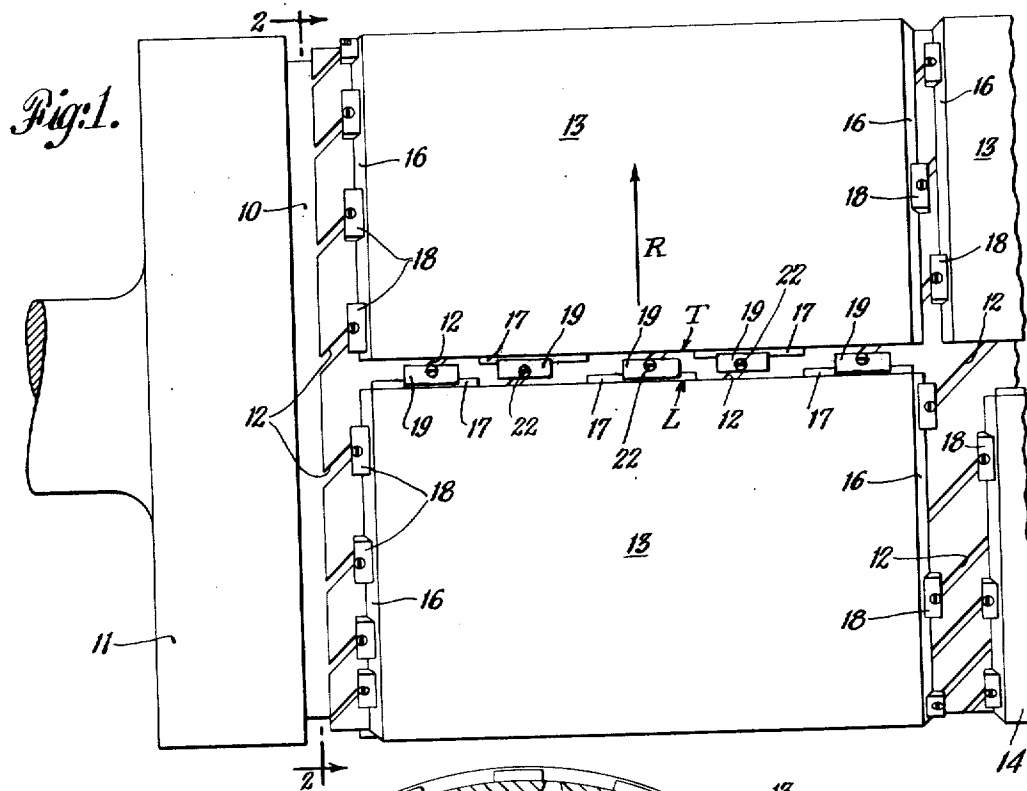 2
Fig:1.
16
16
16
13
13
10
18
18
R
18
12
22
12
17
19
19
T
19
17
19
12
19
17
22
17
22
L
12
17
18
18
16
13
12
16
18
11
14
2
13